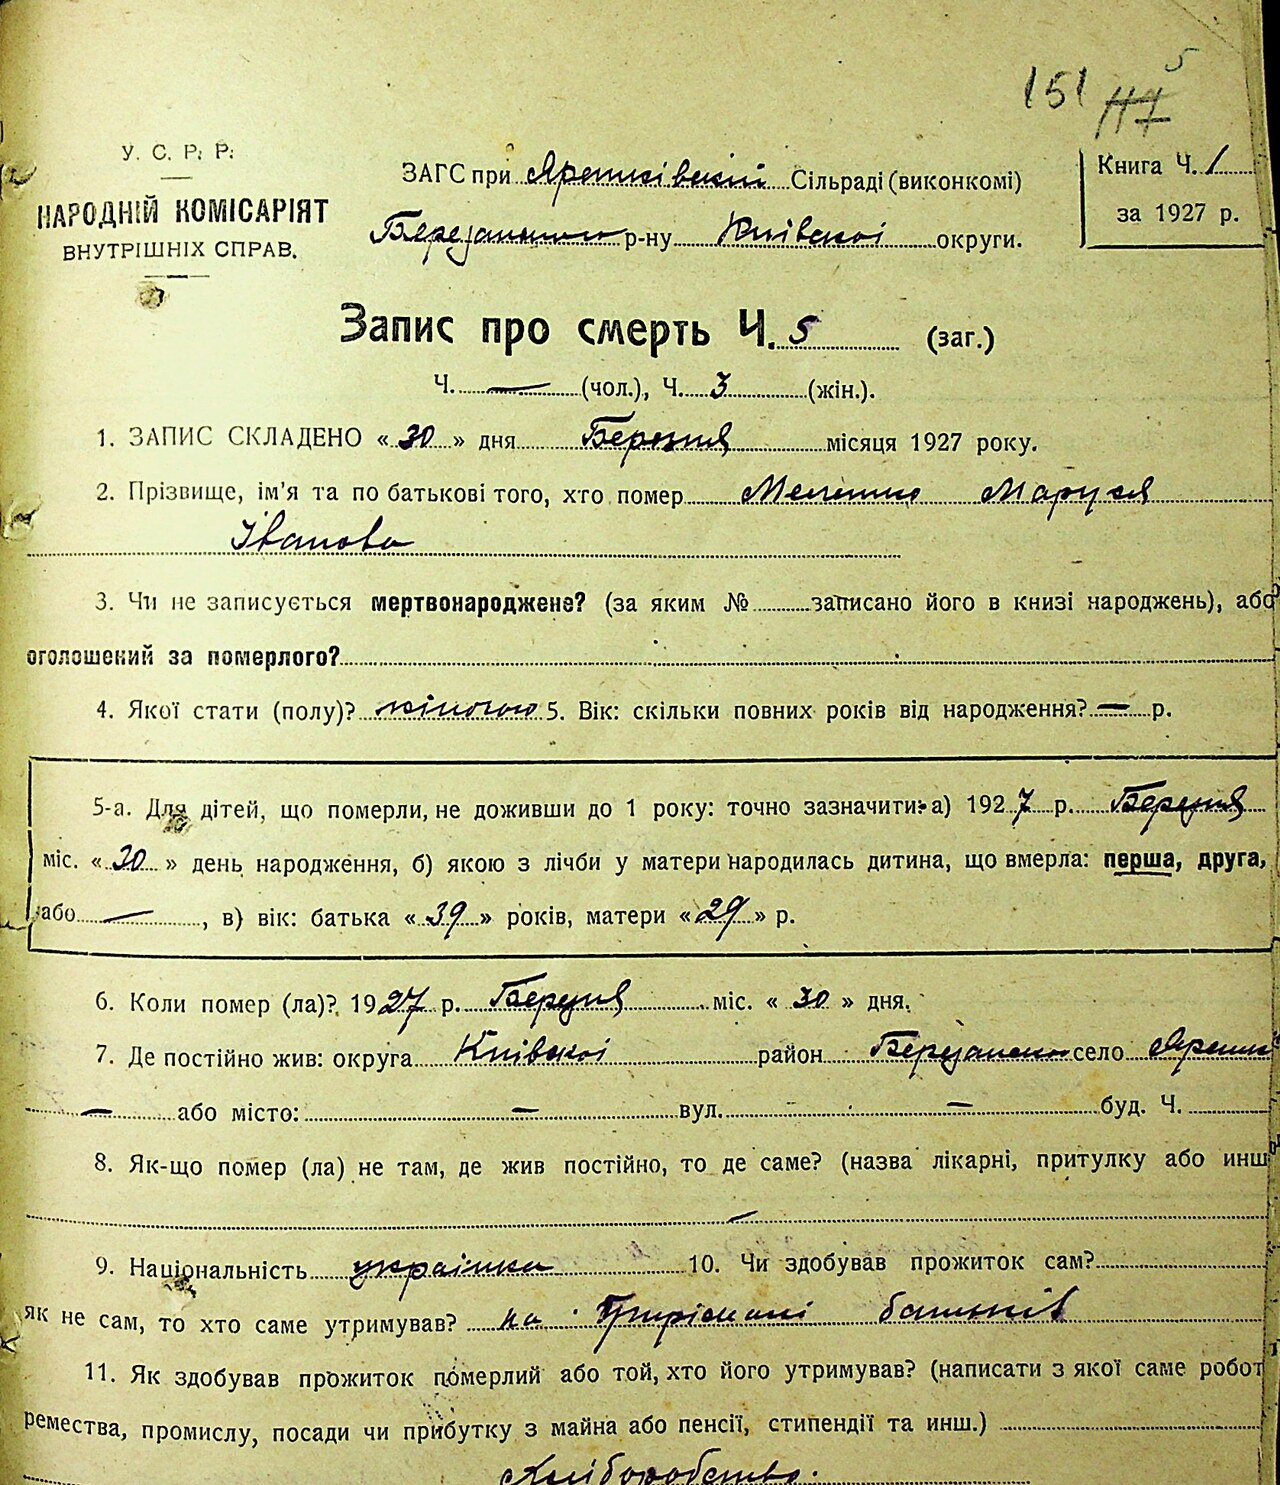 151 117 5
У. С. Р. Р.
НАРОДНІЙ КОМІСАРІЯТ
ВНУТРІШНІХ СПРАВ.
ЗАГС при Ярешківській Сільраді (виконкомі)
Березанського р-ну Київської округи.
Книга Ч. 1
за 1927 р.
Запис про смерть Ч. 5 (заг.)
Ч. — (чол.), Ч. 3 (жін.).
1. ЗАПИС СКЛАДЕНО « 30 » дня Березня місяця 1927 року.
2. Прізвище, ім'я та по батькові того, хто помер Маруся
Іванова
3. Чи не записується мертвонароджене? (за яким № записано його в книзі народжень), або
оголошений за померлого?
4. Якої стати (полу)? жіночою 5. Вік: скільки повних років від народження? — р.
5-а. Для дітей, що померли, не доживши до 1 року: точно зазначити: а) 1927 р. Березня
міс. « 30 » день народження, б) якою з лічби у матери народилась дитина, що вмерла: перша, друга,
або —, в) вік: батька « 39 » років, матери « 29 » р.
6. Коли помер (ла)? 1927 р. Березня міс. « 30 » дня.
7. Де постійно жив: округа Київської район Березансько село Ярешк
— або місто: — вул. — буд. Ч.
8. Як-що помер (ла) не там, де жив постійно, то де саме? (назва лікарні, притулку або инш
—
9. Національність українка 10. Чи здобував прожиток сам?
як не сам, то хто саме утримував? на батьків
11. Як здобував прожиток померлий або той, хто його утримував? (написати з якої саме робот
ремества, промислу, посади чи прибутку з майна або пенсії, стипендії та инш.)
Хліборобство.